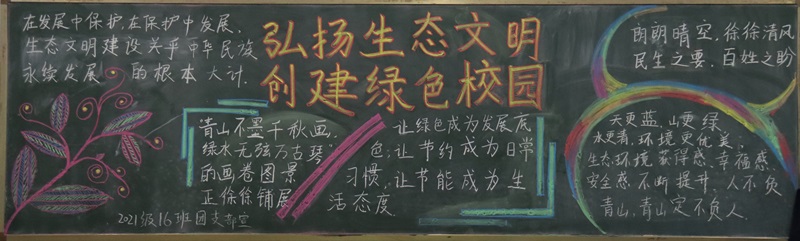 在发展中保护,在保护中发展.
生态文明建设关乎中华民族
永续发展 的根本大计.
弘扬生态文明
创建绿色校园
朗朗晴空,徐徐清风
民生之要,百姓之盼
"青山不墨千秋画,
绿水无弦万古琴"
的画卷图景
正徐徐铺展
让绿色成为发展底
色;让节约成为日常
习惯,让节能成为生
活态度.
天更蓝,山更绿
水更清,环境更优美,
生态环境获得感,幸福感,
安全感不断提升,人不负
青山,青山定不负人.
2021级16班团支部宣